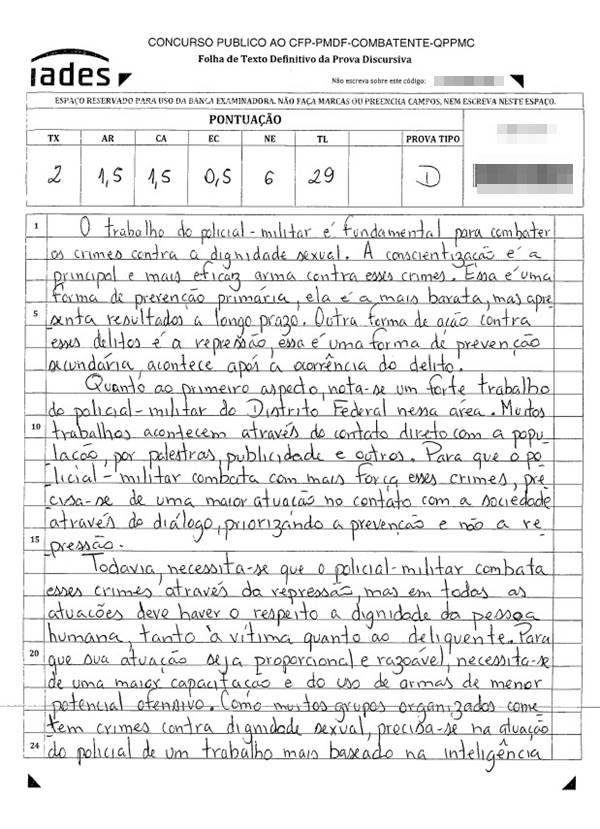 CONCURSO PUBLICO AO CFP-PMDF-COMBATENTE-QPPMC
Folha de Texto Definitivo da Prova Discursiva
iades
Não escreva sobre este código:
ESPAÇO RESERVADO PARA USO DA BANCA EXAMINADORA. NÃO FAÇA MARCAS OU PREENCHA CAMPOS, NEM ESCREVA NESTE ESPAÇO.
PONTUAÇÃO
TX AR CA EC NE TL PROVA TIPO
2 1,5 1,5 0,5 6 29 D
1 O trabalho do policial-militar é fundamental para combater
os crimes contra a dignidade sexual. A conscientização é a
principal e mais eficaz arma contra esses crimes. Essa é uma
forma de prevenção primária, ela é a mais barata, mas apre
5 senta resultados a longo prazo. Outra forma de ação contra
esses delitos é a repressão, essa é uma forma de prevenção
secundária, acontece após a ocorrência do delito.
Quanto ao primeiro aspecto, nota-se um forte trabalho
do policial-militar do Distrito Federal nessa área. Muitos
10 trabalhos acontecem através do contato direto com a popu
lação, por palestras, publicidade e outros. Para que o po
licial-militar combata com mais força esses crimes, pre
cisa-se de uma maior atuação no contato com a sociedade
através do diálogo, priorizando a prevenção e não a re
15 pressão.
Todavia, necessita-se que o policial-militar combata
esses crimes através da repressão, mas em todas as
atuacões deve haver o respeito a dignidade da pessoa
humana, tanto à vítima quanto ao deliquente. Para
20 que sua atuação seja proporcional e razoável, necessita-se
de uma maior capacitação e do uso de armas de menor
potencial ofensivo. Como muitos grupos organizados come
tem crimes contra dignidade sexual, precisa-se na atuação
24 do policial de um trabalho mais baseado na inteligência